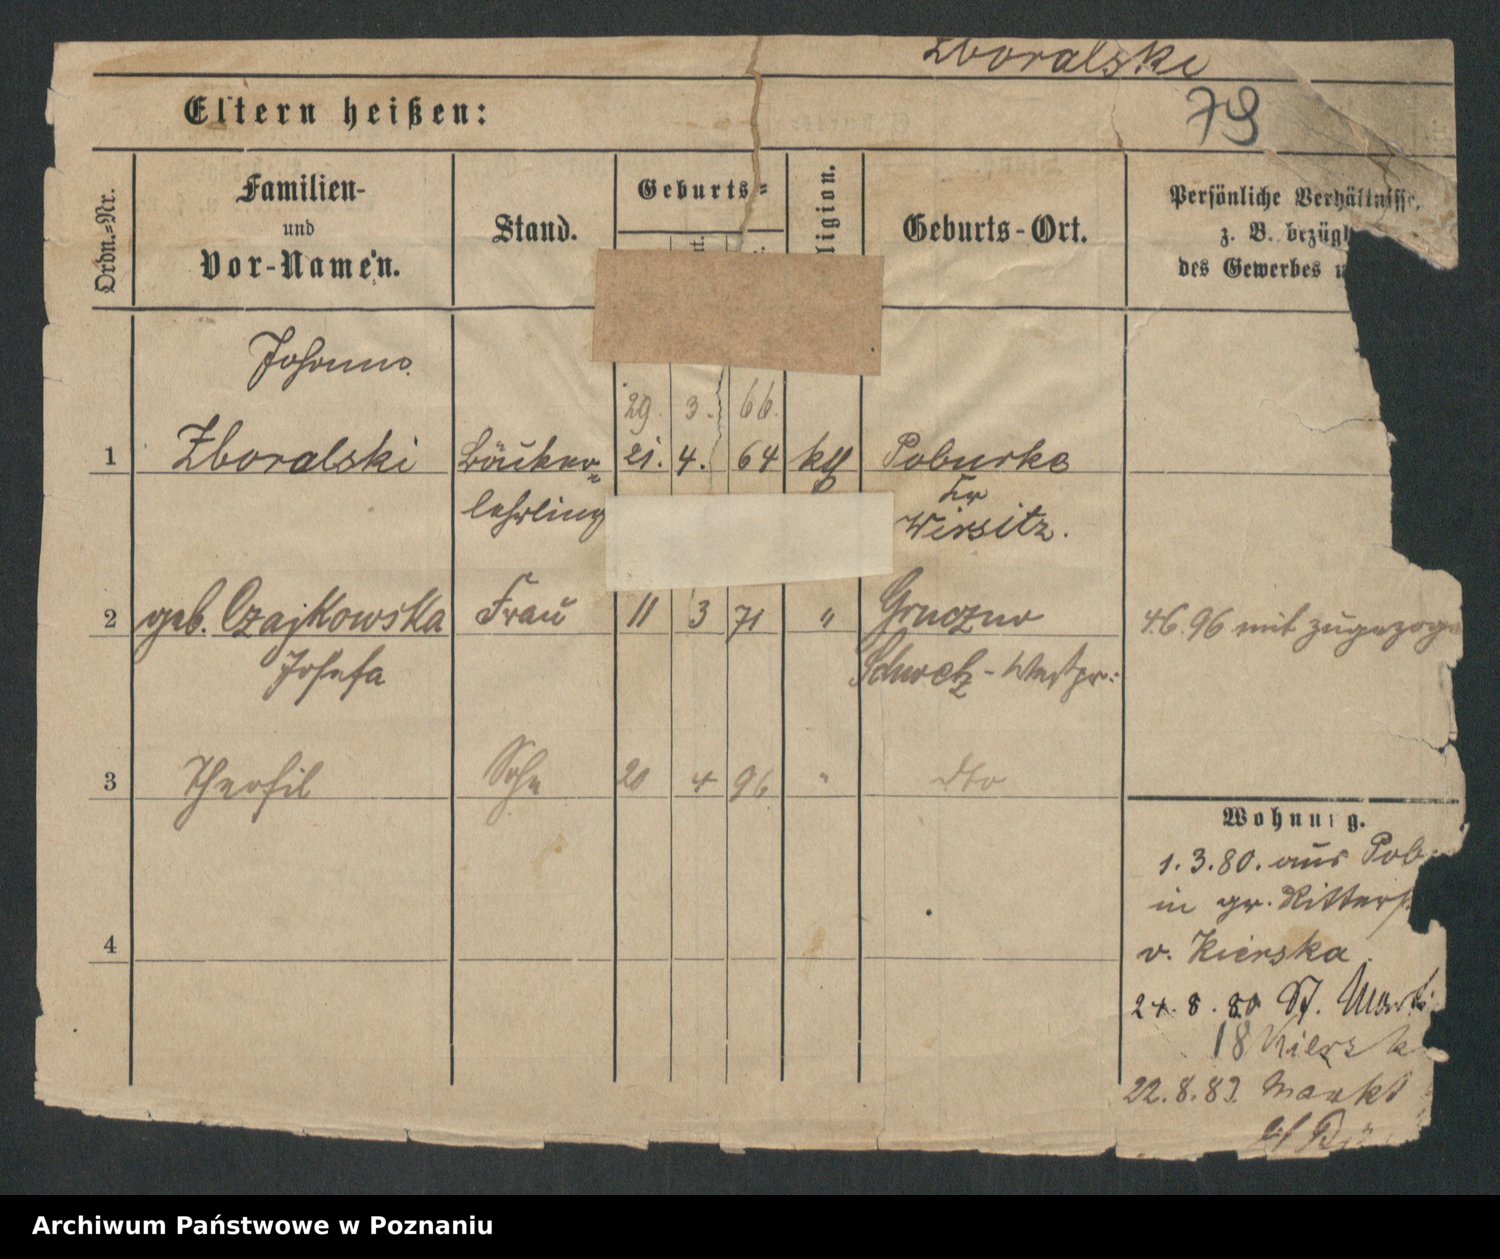 Zboralski
79
Eltern heißen:
Ordn.=Nr.
Familien-
und
Vor-Namen.
Stand.
Geburts=
Geburts-Ort.
Persönliche Verhältnisse,
z. B. bezügl
des Gewerbes u
Johann
29. 3. 66.
1 Zboralski Bäcker 21. 4. 64 kth Poburke
lehrling
Kr
Wirsitz.
2 geb. Czajkowska Frau 11 3 71 " Gruczno 4.6.96 mit zugezoge
Josefa Schwetz-Westpr:
3 Theofil Sohn 20 4 96 " dto
Wohnung.
1.3.80. aus Pob
in gr. Ritterst.
v. Kierska
4
24.8.80 St. Mart
18 Kiersk
22.8.83. Markt
Archiwum Państwowe w Poznaniu